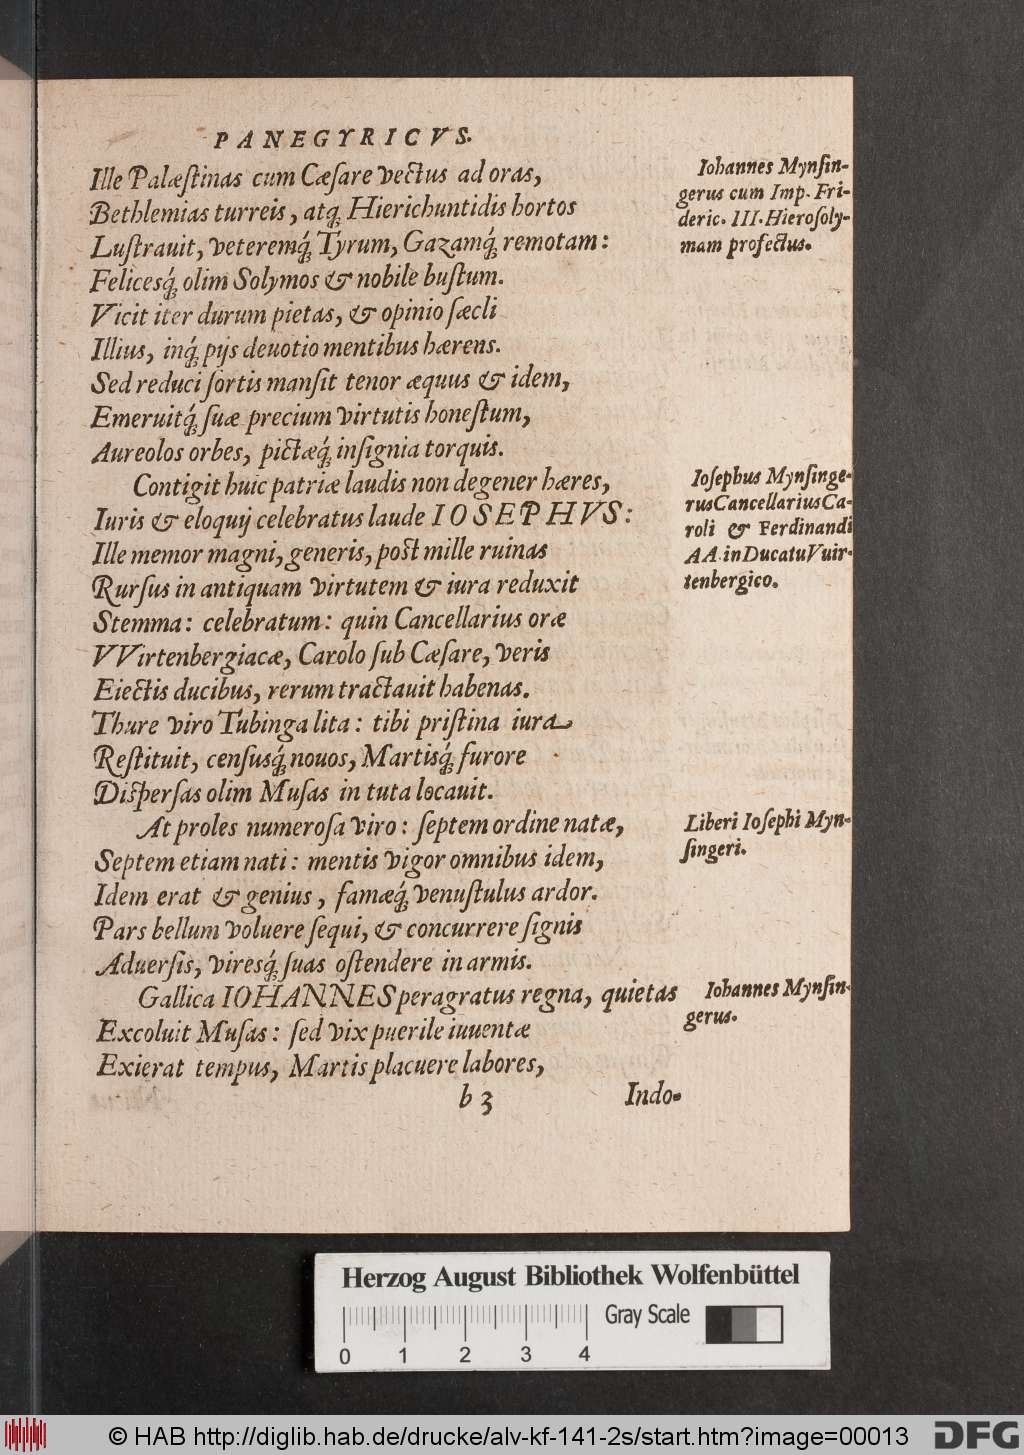 PANEGYRICVS.
Ille Palæſtinas cum Cæſare vectus ad oras,
Bethlemias turreis, atq́; Hierichuntidis hortos
Luſtrauit, veteremq́; Tyrum, Gazamq́; remotam:
Felicesq́; olim Solymos & nobile buſtum.
Vicit iter durum pietas, & opinio ſæcli
Illius, inq́; pijs deuotio mentibus hærens.
Sed reduci ſortis manſit tenor æquus & idem,
Emeruitq́; ſuæ precium virtutis honeſtum,
Aureolos orbes, pictæq́; inſignia torquis.
Contigit huic patriæ laudis non degener hæres,
Iuris & eloquij celebratus laude IOSEPHVS:
Ille memor magni, generis, poſt mille ruinas
Rurſus in antiquam virtutem & iura reduxit
Stemma: celebratum: quin Cancellarius oræ
VVirtenbergiacæ, Carolo ſub Cæſare, veris
Eiectis ducibus, rerum tractauit habenas.
Thure viro Tubinga lita: tibi priſtina iura
Reſtituit, cenſusq́; nouos, Martisq́; furore
Diſperſas olim Muſas in tuta locauit.
At proles numeroſa viro: ſeptem ordine natæ,
Septem etiam nati: mentis vigor omnibus idem,
Idem erat & genius, famæq́; venuſtulus ardor.
Pars bellum voluere ſequi, & concurrere ſignis
Aduerſis, viresq́; ſuas oſtendere in armis.
Gallica IOHANNES peragratus regna, quietas
Excoluit Muſas: ſed vix puerile iuuentæ
Exierat tempus, Martis placuere labores,
b 3
Indo-
Iohannes Mynſin-
gerus cum Imp. Fri-
deric. III. Hieroſoly-
mam profectus.
Ioſephus Mynſinge-
rus Cancellarius Ca-
roli & Ferdinandi
AA. in Ducatu Vuir-
tenbergico.
Liberi Ioſephi Myn-
ſingeri.
Iohannes Mynſin-
gerus.
Herzog August Bibliothek Wolfenbüttel
Gray Scale
0 1 2 3 4
© HAB http://diglib.hab.de/drucke/alv-kf-141-2s/start.htm?image=00013
DFG